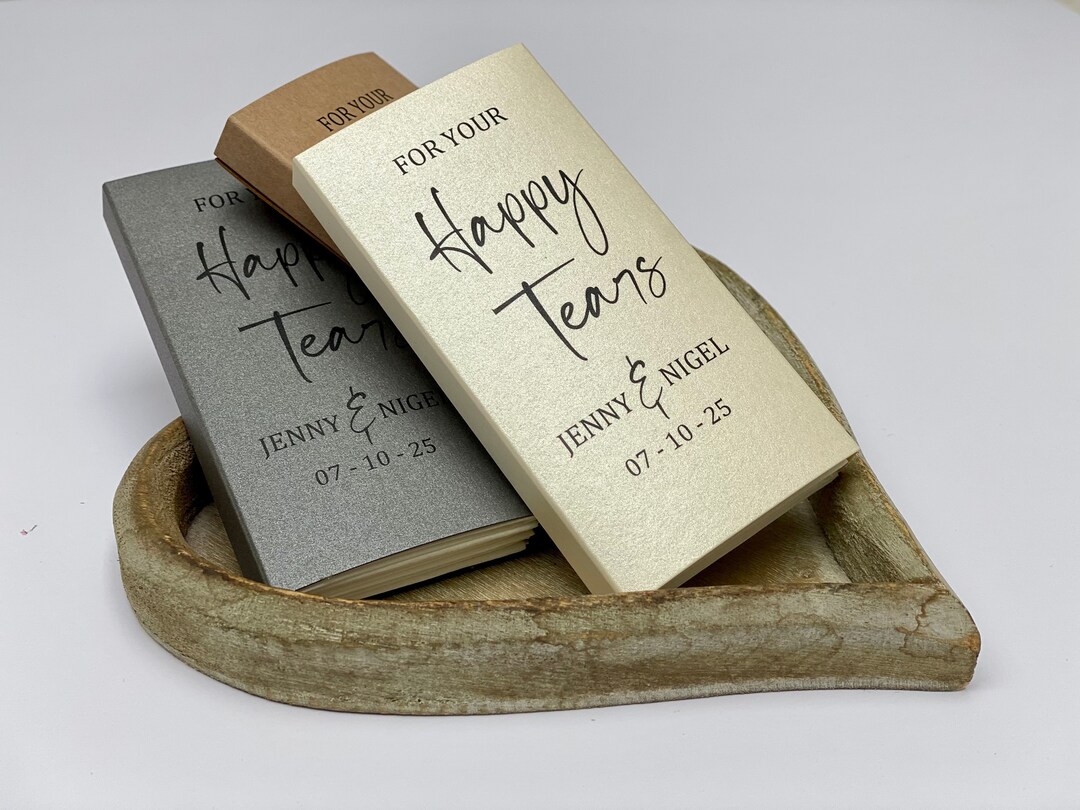 FOR YOUR
FOR YOUR
Happy
Tears
JENNY & NIGEL
07 - 10 - 25
FOR
Happy
Tears
JENNY & NIGE
07 - 10 - 25